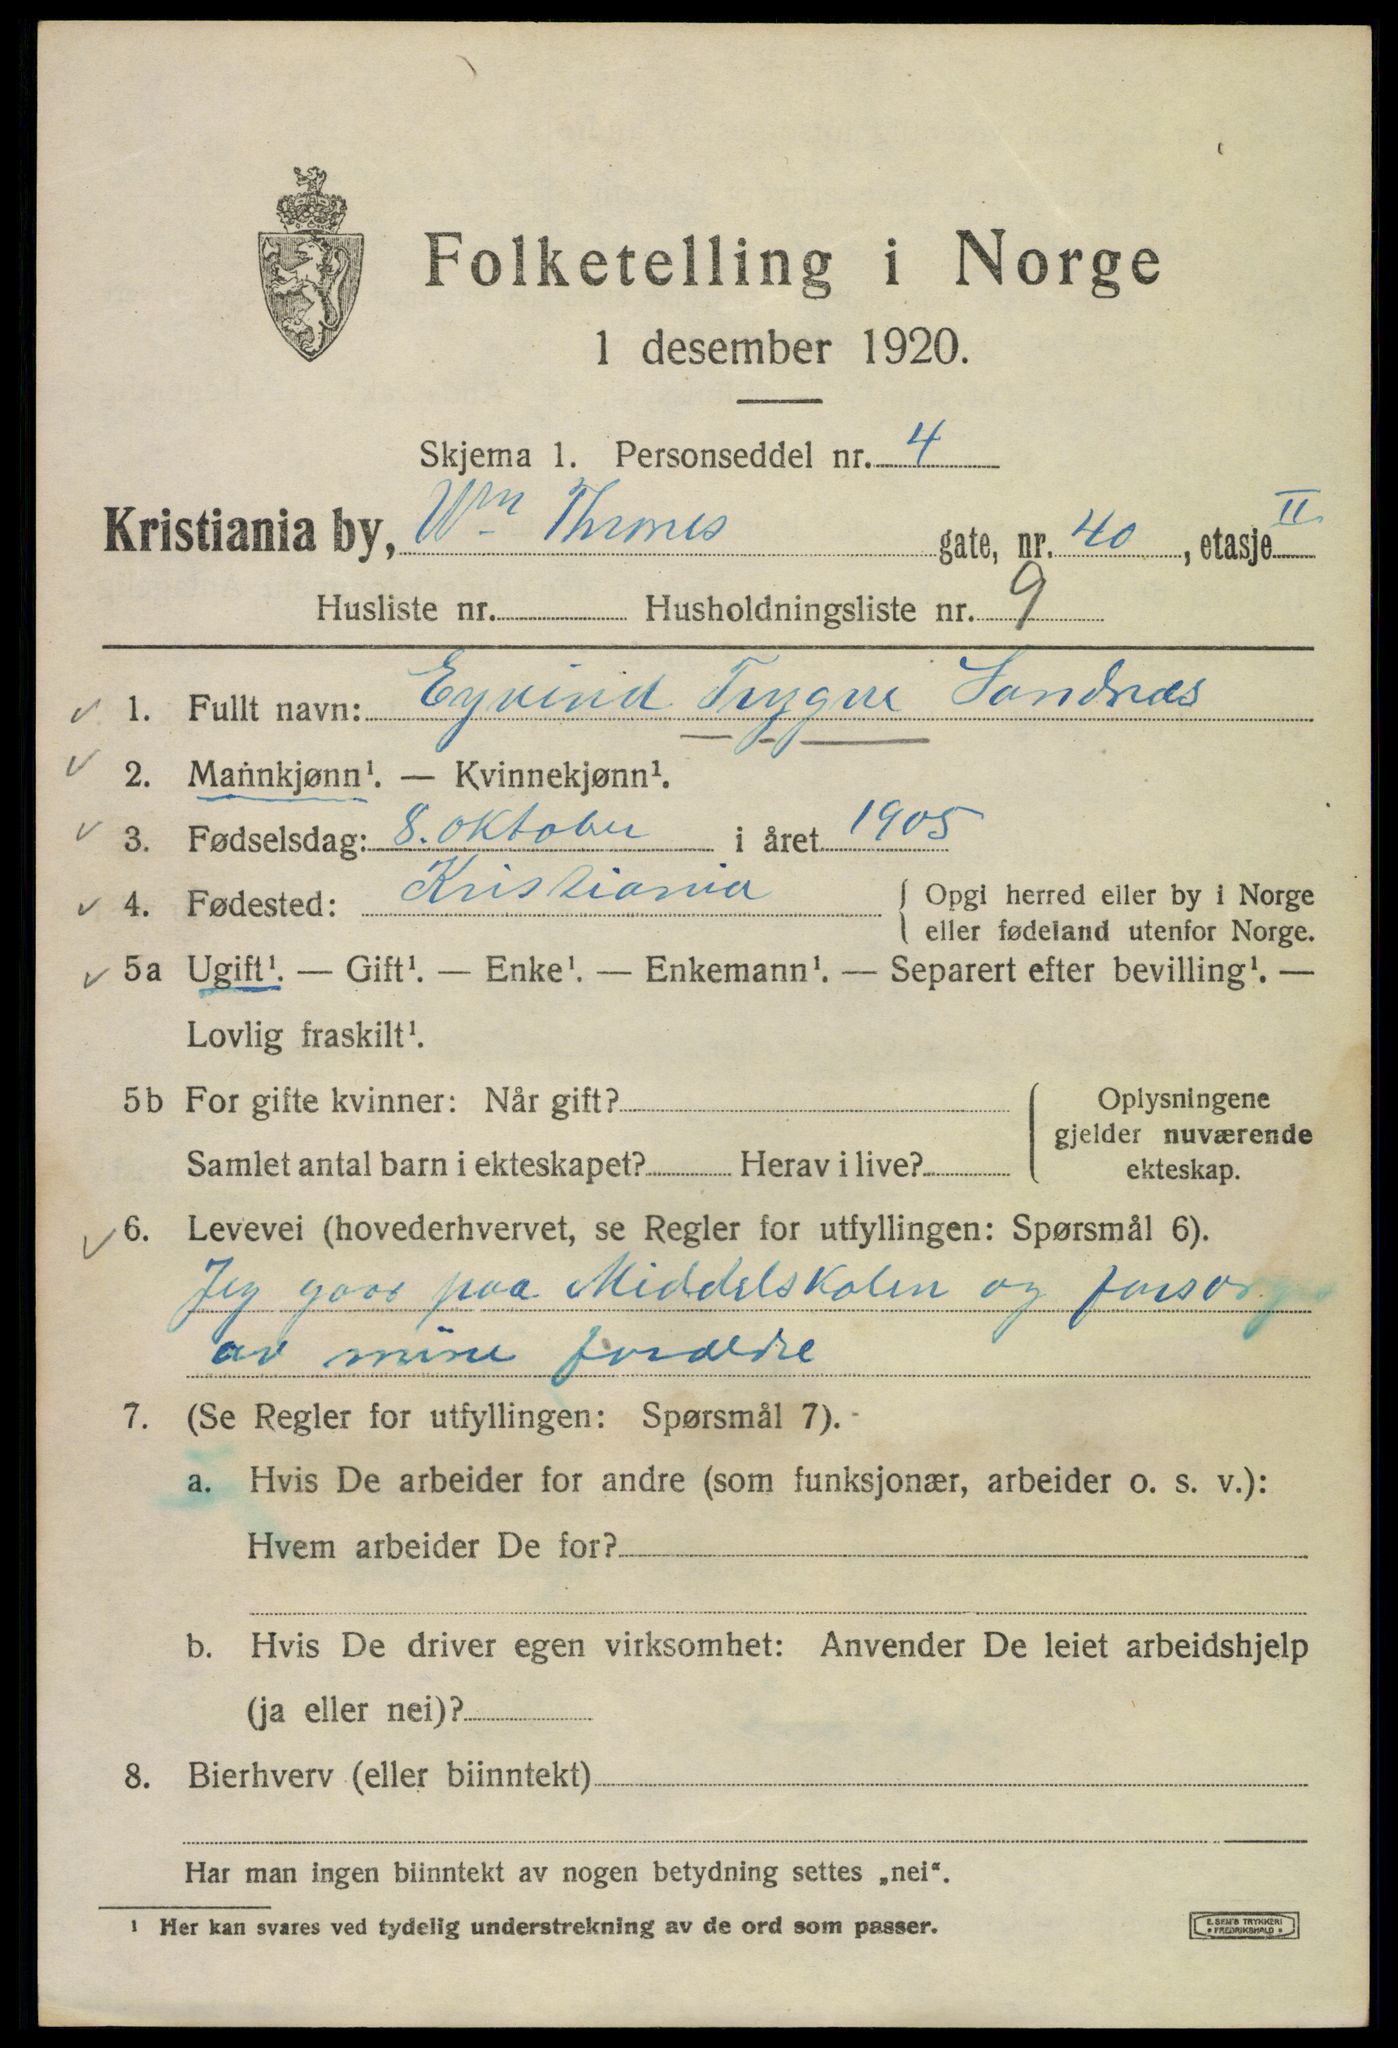 Folketelling i Norge
1 desember 1920.
Skjema 1. Personseddel nr. 4
Kristiania by, Wm Thranes gate, nr. 40, etasje II
Husliste nr. Husholdningsliste nr. 9
1. Fullt navn: Eyvind Trygve Sandnæs
2. Mannkjønn¹. — Kvinnekjønn¹.
3. Fødselsdag: 8. oktober i året 1905
4. Fødested: Kristiania Opgi herred eller by i Norge
eller fødeland utenfor Norge.
5a Ugift¹. — Gift¹. — Enke¹. — Enkemann¹. — Separert efter bevilling¹. —
Lovlig fraskilt¹.
5b For gifte kvinner: Når gift? Oplysningene
gjelder nuværende
Samlet antal barn i ekteskapet? Herav i live? ekteskap.
6. Levevei (hovederhvervet, se Regler for utfyllingen: Spørsmål 6).
Jeg gaar paa Middelskolen og forsørges
av mine forældre
7. (Se Regler for utfyllingen: Spørsmål 7).
a. Hvis De arbeider for andre (som funksjonær, arbeider o. s. v.):
Hvem arbeider De for?
b. Hvis De driver egen virksomhet: Anvender De leiet arbeidshjelp
(ja eller nei)?
8. Bierhverv (eller biinntekt)
Har man ingen biinntekt av nogen betydning settes „nei“.
¹ Her kan svares ved tydelig understrekning av de ord som passer.
E. SEM'S TRYKKERI
* FREDRIKSHALD *